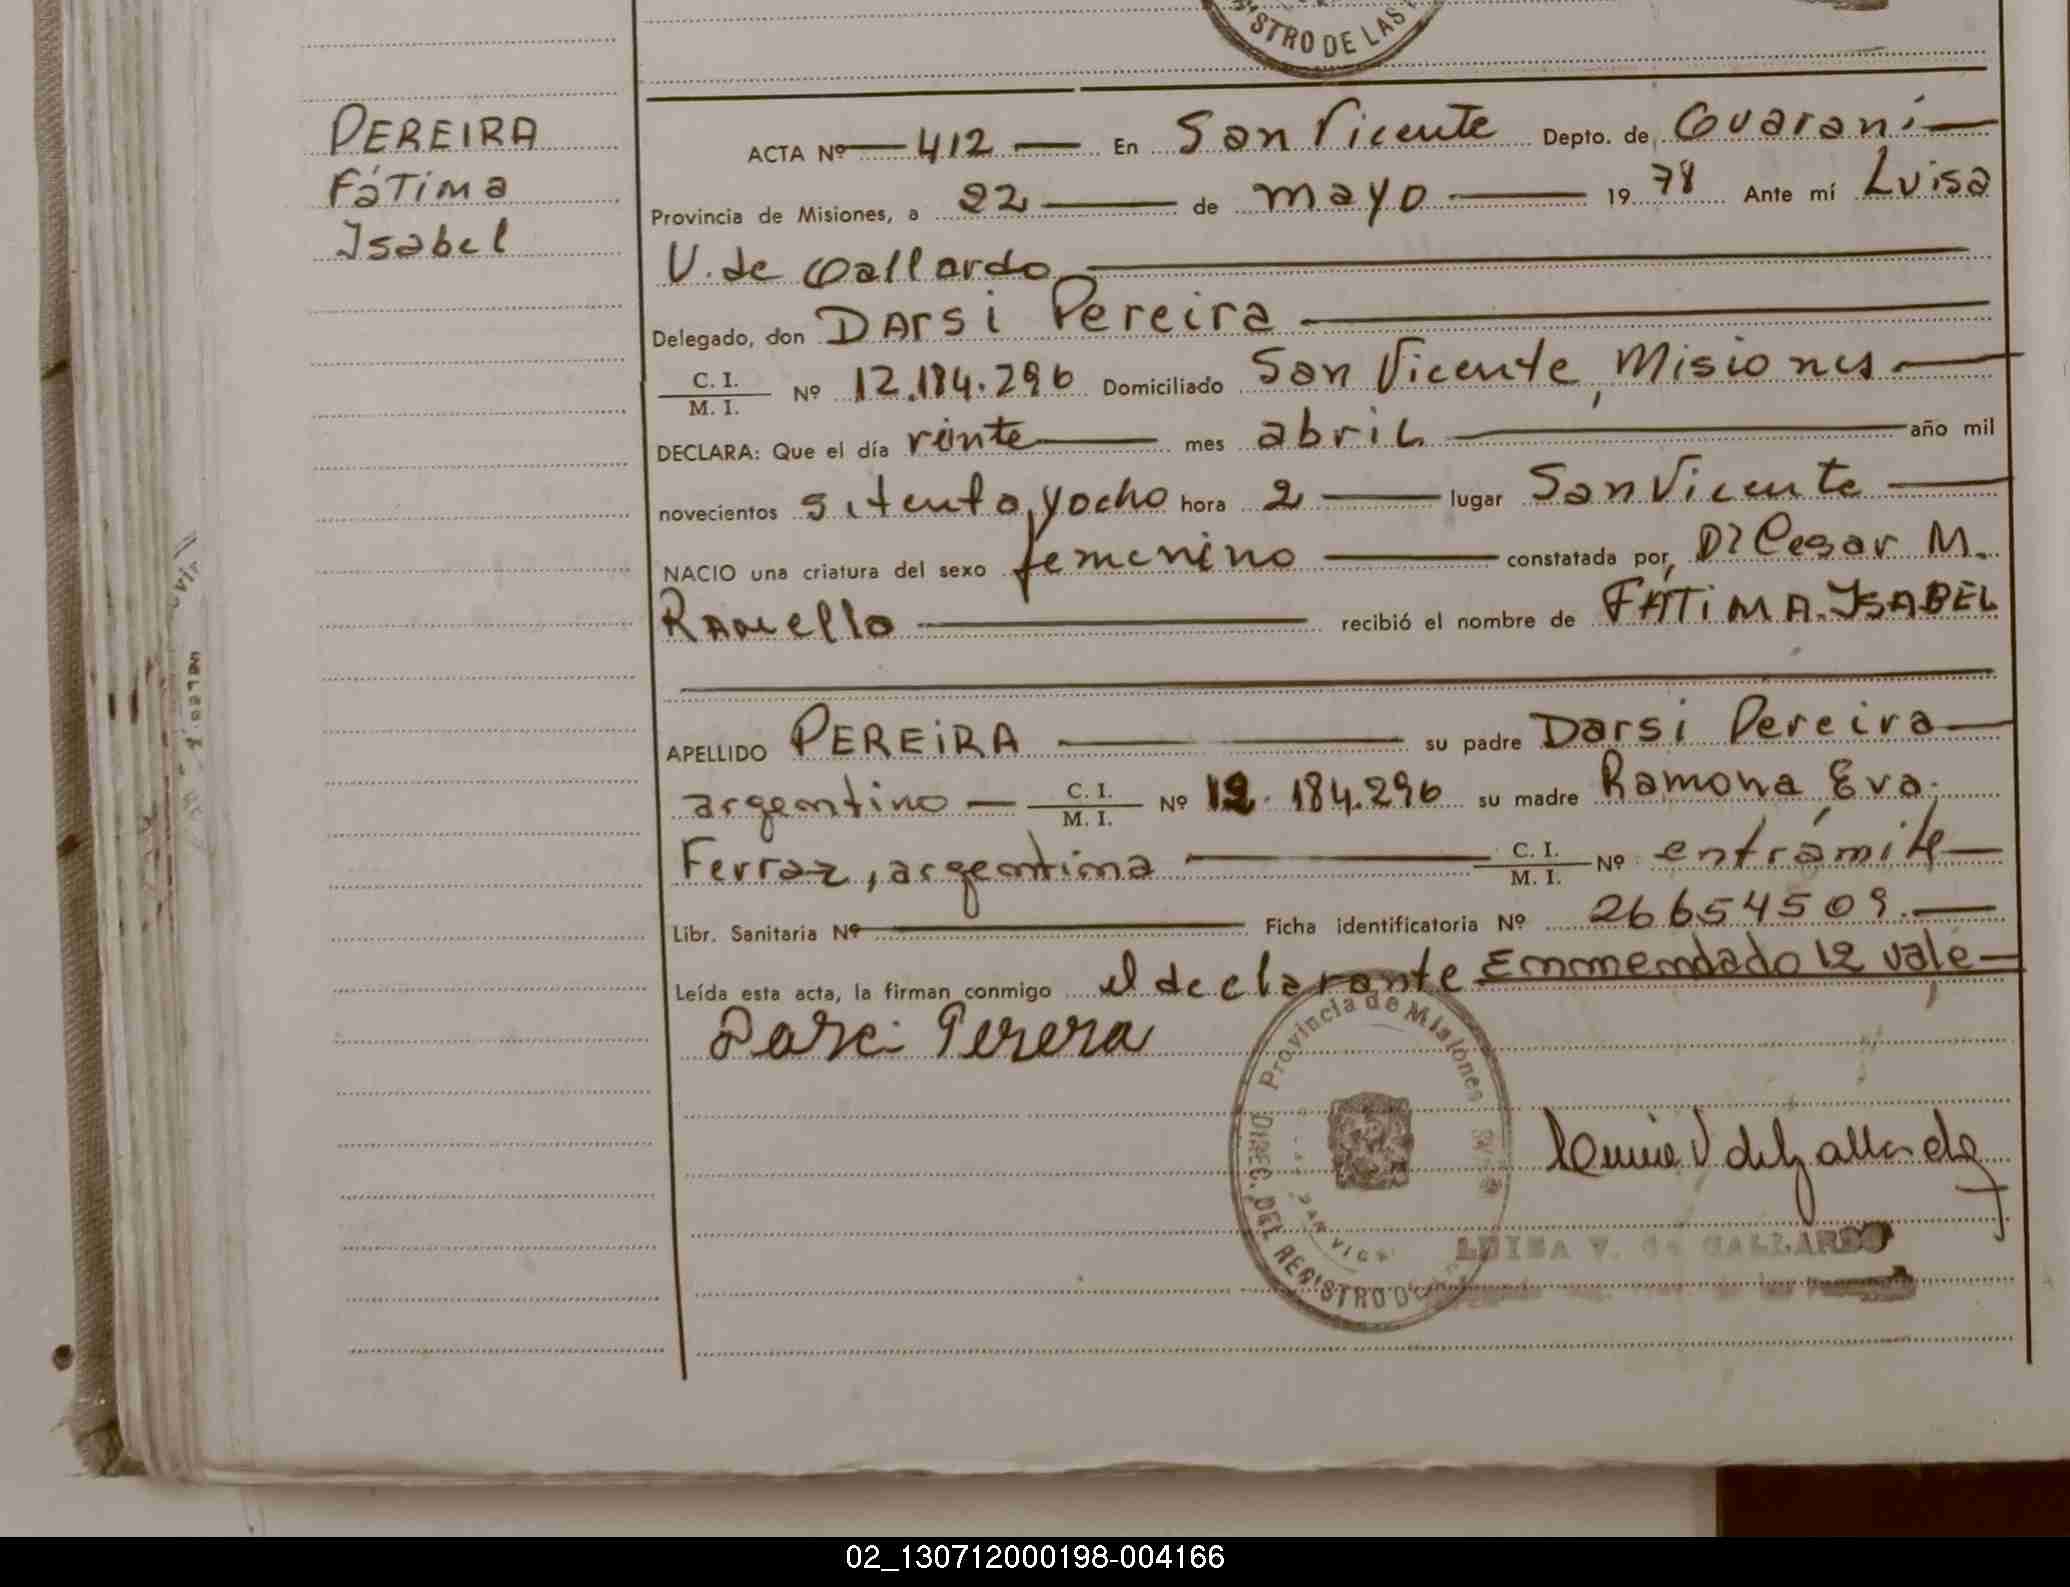 STRO DE LAS
PEREIRA
Fátima
Isabel
ACTA Nº 412 En San Vicente Depto. de Guaraní
Provincia de Misiones, a 22 de mayo 1978 Ante mí Luisa
V. de Gallardo
Delegado, don DArsi Pereira
C. I.
M. I. Nº 12.184.296 Domiciliado San Vicente, Misiones
DECLARA: Que el día veinte mes abril año mil
novecientos setenta y ocho hora 2 lugar San Vicente
NACIO una criatura del sexo femenino constatada por, Dr Cesar M.
recibió el nombre de FÁTIMA ISABEL
APELLIDO PEREIRA su padre Darsi Pereira
argentino C. I.
M. I. Nº 12.184.296 su madre Ramona Eva
Ferraz, argentina C. I.
M. I. Nº en trámite
Libr. Sanitaria Nº Ficha identificatoria Nº 26654509.
Leída esta acta, la firman conmigo el declarante Enmendado 12 vale
Darci Perera
Provincia de Misiones
DIREC. DEL REGISTRO DE
SAN VICE
Luisa V de Gallardo
LUISA V. de GALLARDO
02_130712000198-004166